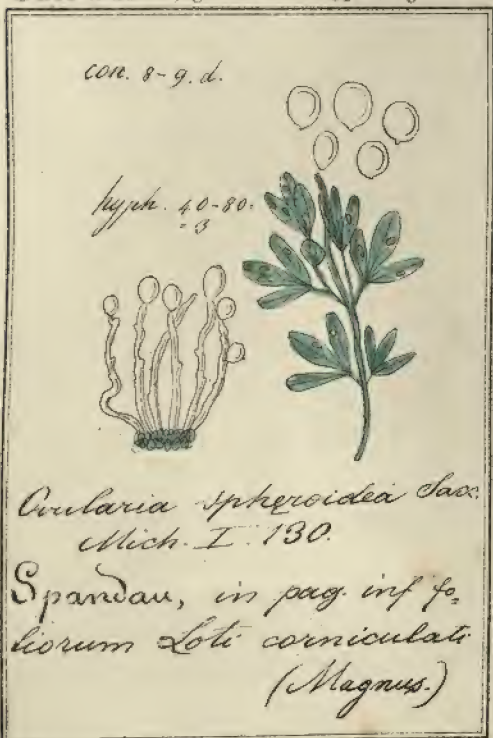 con. 8-9. d.
hyph. 40-80.
= 3
Ovularia spheroidea Sacc.
Mich. I. 130.
Spandau, in pag. inf fo=
liorum Loti corniculati
(Magnus.)